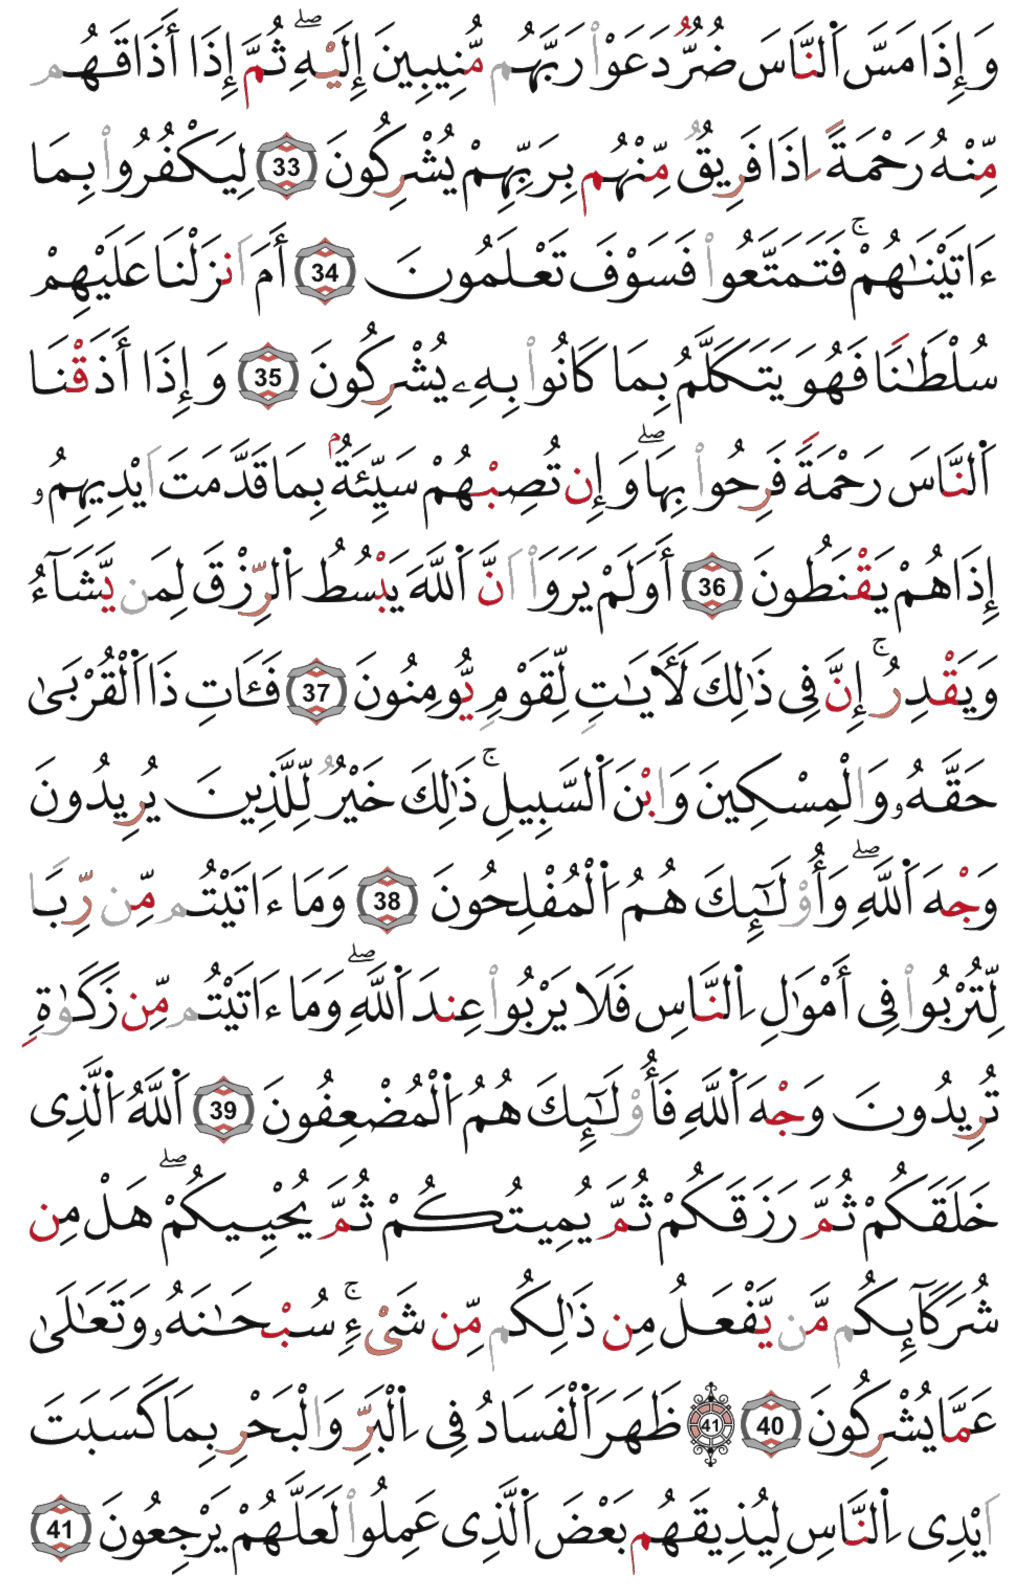 وَإِذَا مَسَّ اَ۬لنَّاسَ ضُرّٞ دَعَوْاْ رَبَّهُم مُّنِيبِينَ إِلَيْهِۖ ثُمَّ إِذَا أَذَاقَهُم
مِّنْهُ رَحْمَةً اِذَا فَرِيقٞ مِّنْهُم بِرَبِّهِمْ يُشْرِكُونَ 33 لِيَكْفُرُواْ بِمَا
ءَاتَيْنَٰهُمْۚ فَتَمَتَّعُواْ فَسَوْفَ تَعْلَمُونَ 34 أَمَ اَنزَلْنَا عَلَيْهِمْ
سُلْطَٰنٗا فَهُوَ يَتَكَلَّمُ بِمَا كَانُواْ بِهِۦ يُشْرِكُونَ 35 وَإِذَا أَذَقْنَا
اَ۬لنَّاسَ رَحْمَةٗ فَرِحُواْ بِهَاۖ وَإِن تُصِبْهُمْ سَيِّئَةُۢ بِمَا قَدَّمَتَ اَيْدِيهِمُۥ
إِذَا هُمْ يَقْنَطُونَ 36 أَوَلَمْ يَرَوَاْ اَنَّ اَ۬للَّهَ يَبْسُطُ اُ۬لرِّزْقَ لِمَن يَّشَآءُ
وَيَقْدِرُۚ إِنَّ فِى ذَٰلِكَ لَأَيَٰتٖ لِّقَوْمٖ يُّومِنُونَ 37 فَـَٔاتِ ذَا اَ۬لْقُرْبَىٰ
حَقَّهُۥ وَالْمِسْكِينَ وَابْنَ اَ۬لسَّبِيلِۚ ذَٰلِكَ خَيْرٞ لِّلَّذِينَ يُرِيدُونَ
وَجْهَ اَ۬للَّهِۖ وَأُوْلَٰٓئِكَ هُمُ اُ۬لْمُفْلِحُونَ 38 وَمَا ءَاتَيْتُم مِّن رِّبٗا
لِّتُرْبُواْ فِى أَمْوَٰلِ اِ۬لنَّاسِ فَلَا يَرْبُواْ عِندَ اَ۬للَّهِۖ وَمَا ءَاتَيْتُم مِّن زَكَوٰةٖ
تُرِيدُونَ وَجْهَ اَ۬للَّهِ فَأُوْلَٰٓئِكَ هُمُ اُ۬لْمُضْعِفُونَ 39 اَ۬للَّهُ اُ۬لَّذِى
خَلَقَكُمْ ثُمَّ رَزَقَكُمْ ثُمَّ يُمِيتُكُمْ ثُمَّ يُحْيِيكُمْۖ هَلْ مِن
شُرَكَآئِكُم مَّن يَّفْعَلُ مِن ذَٰلِكُم مِّن شَىْءٖۚ سُبْحَٰنَهُۥ وَتَعَٰلَىٰ
عَمَّا يُشْرِكُونَ 40 41 ظَهَرَ اَ۬لْفَسَادُ فِى اِ۬لْبَرِّ وَالْبَحْرِ بِمَا كَسَبَتَ
اَيْدِى اِ۬لنَّاسِ لِيُذِيقَهُم بَعْضَ اَ۬لَّذِى عَمِلُواْ لَعَلَّهُمْ يَرْجِعُونَ 41